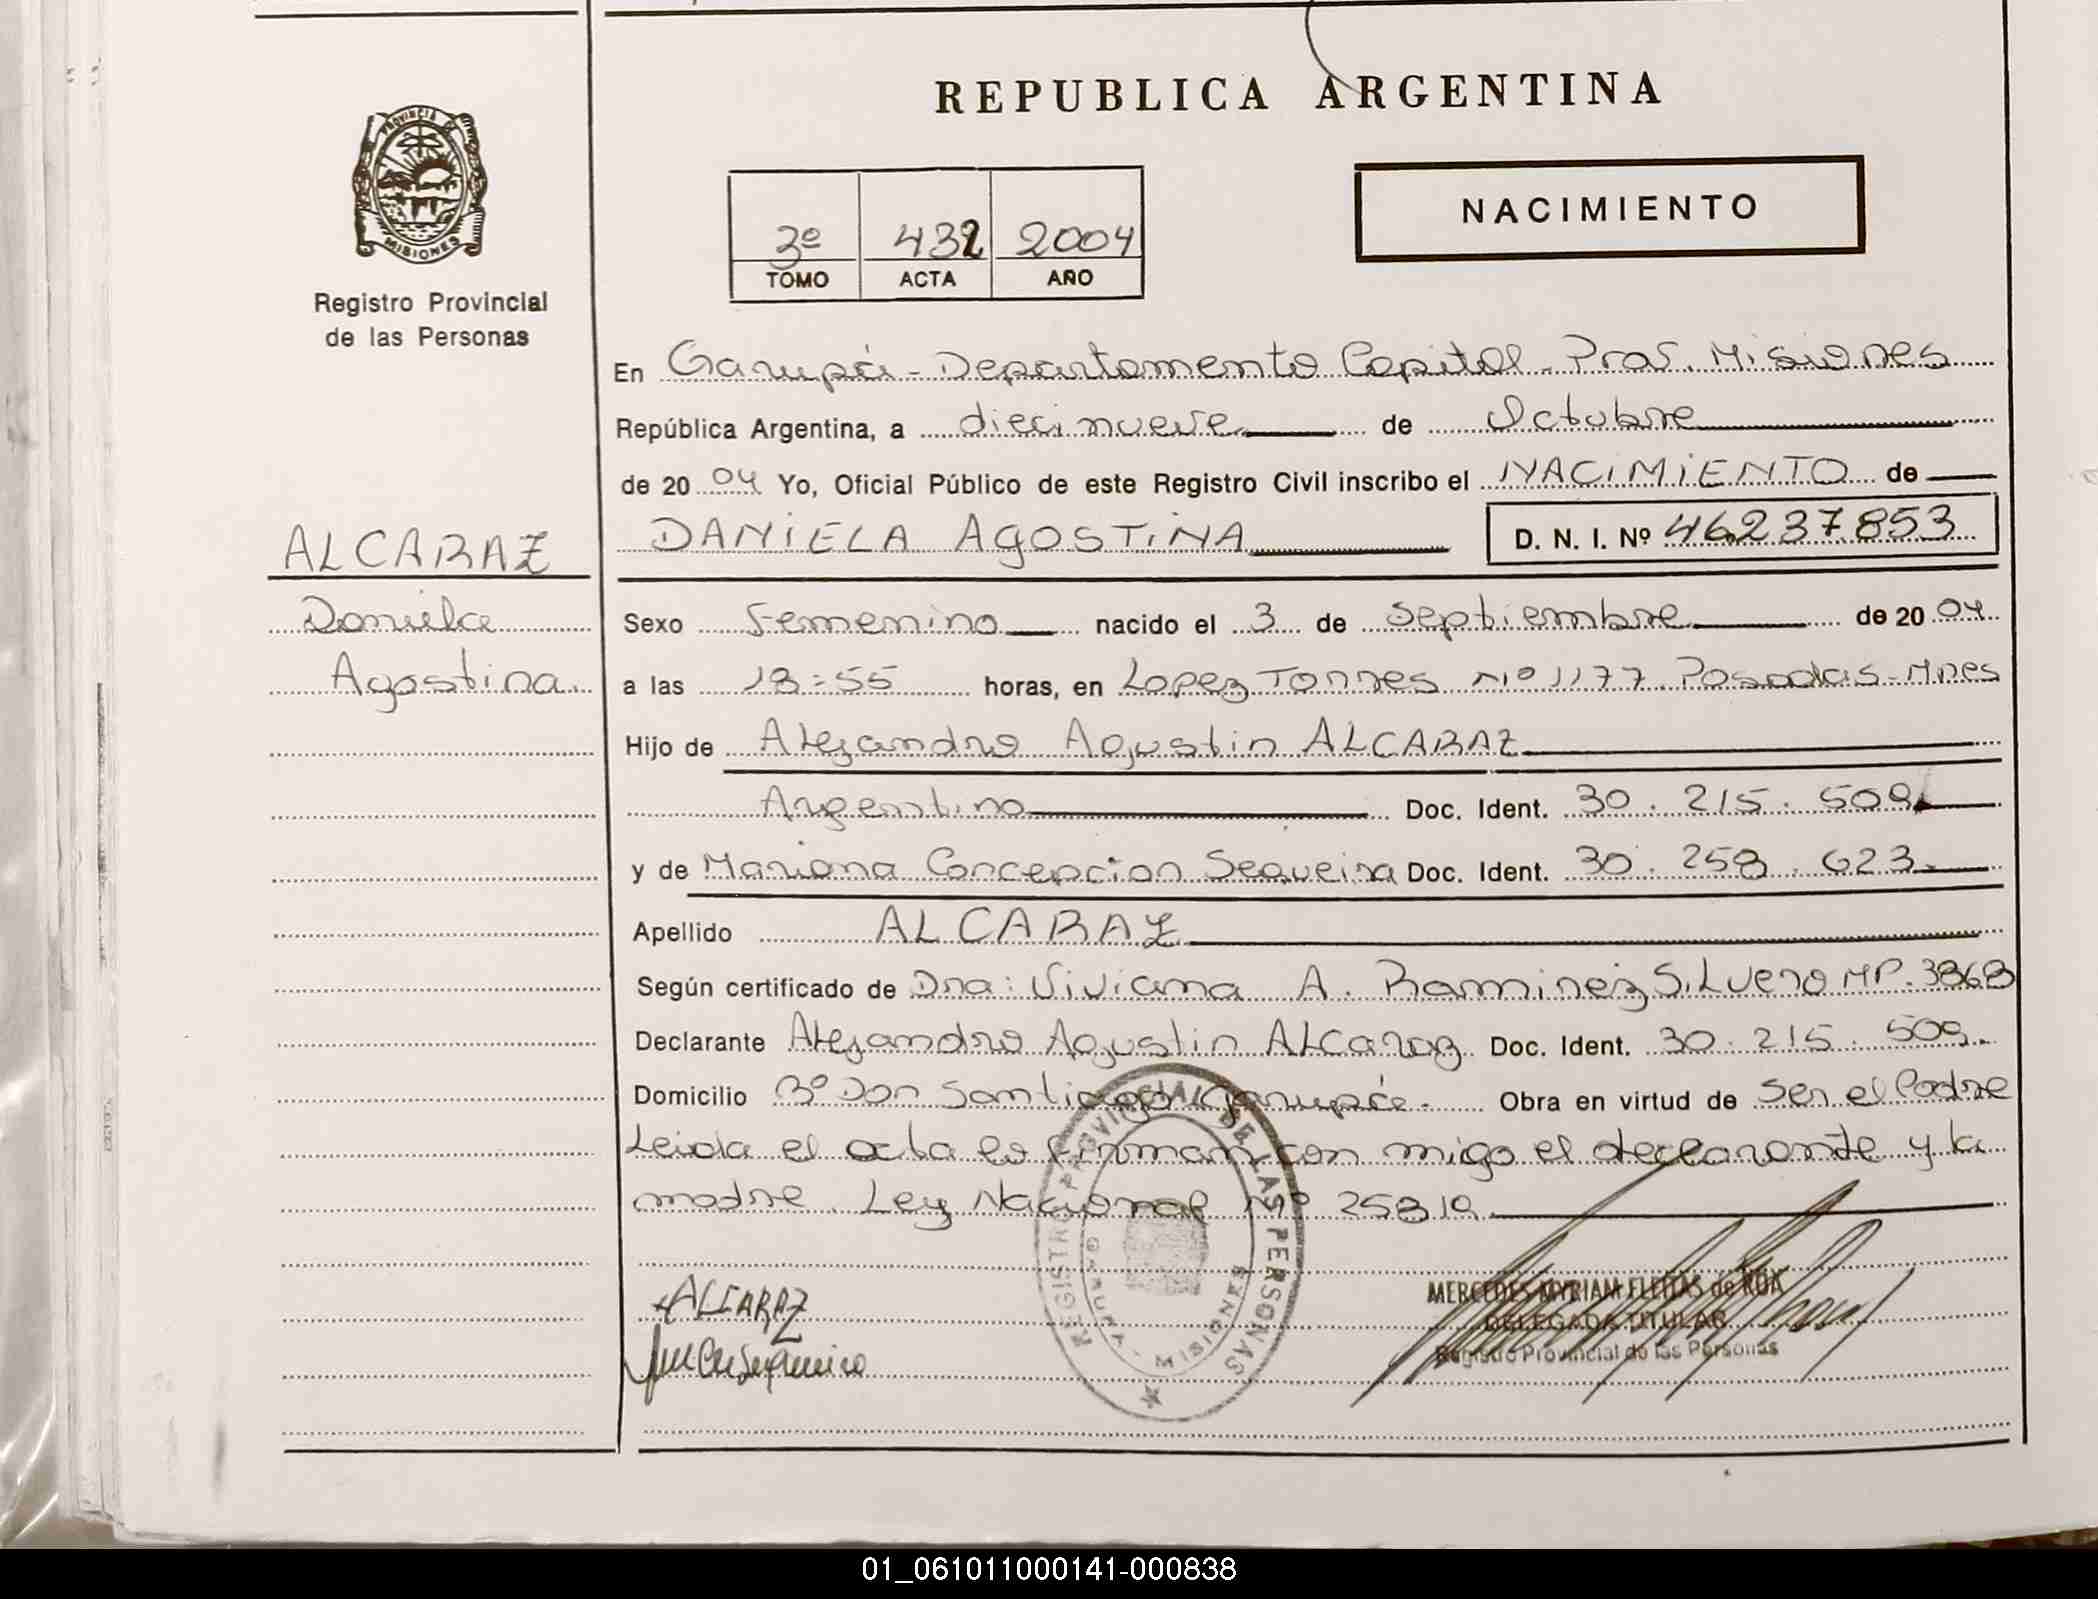 REPUBLICA ARGENTINA
PROVINCIA DE MISIONES
Registro Provincial
de las Personas
3º 432 2004
TOMO ACTA AÑO
NACIMIENTO
En Garupá - Departamento Capital - Prov. Misiones
República Argentina, a diecinueve de Octubre
de 2004 Yo, Oficial Público de este Registro Civil inscribo el NACIMIENTO de
ALCARAZ
Daniela
Agostina.
DANIELA AGOSTINA D. N. I. Nº 46237853
Sexo Femenino nacido el 3 de Septiembre de 2004
a las 18:55 horas, en Lopez Torres Nº 1177 Posadas - Mnes
Hijo de Alejandro Agustin ALCARAZ
Argentino Doc. Ident. 30.215.509
y de Mariana Concepcion Sequeira Doc. Ident. 30.258.623.
Apellido ALCARAZ
Según certificado de Dra: Viviana A. Ramirez Silvero MP. 3868
Declarante Alejandro Agustin ALCaraz Doc. Ident. 30.215.509.
Domicilio Bº Don Santiago Garupá. Obra en virtud de ser el Padre
Leida el acta la firman con migo el declarante y la
madre. Ley Nacional Nº 25819
ALCARAZ
REGISTRO PROVINCIAL DE LAS PERSONAS
GARUPA - MISIONES
MERCEDES MYRIAM FLEITAS de ROA
DELEGADA TITULAR
Registro Provincial de las Personas
01_061011000141-000838